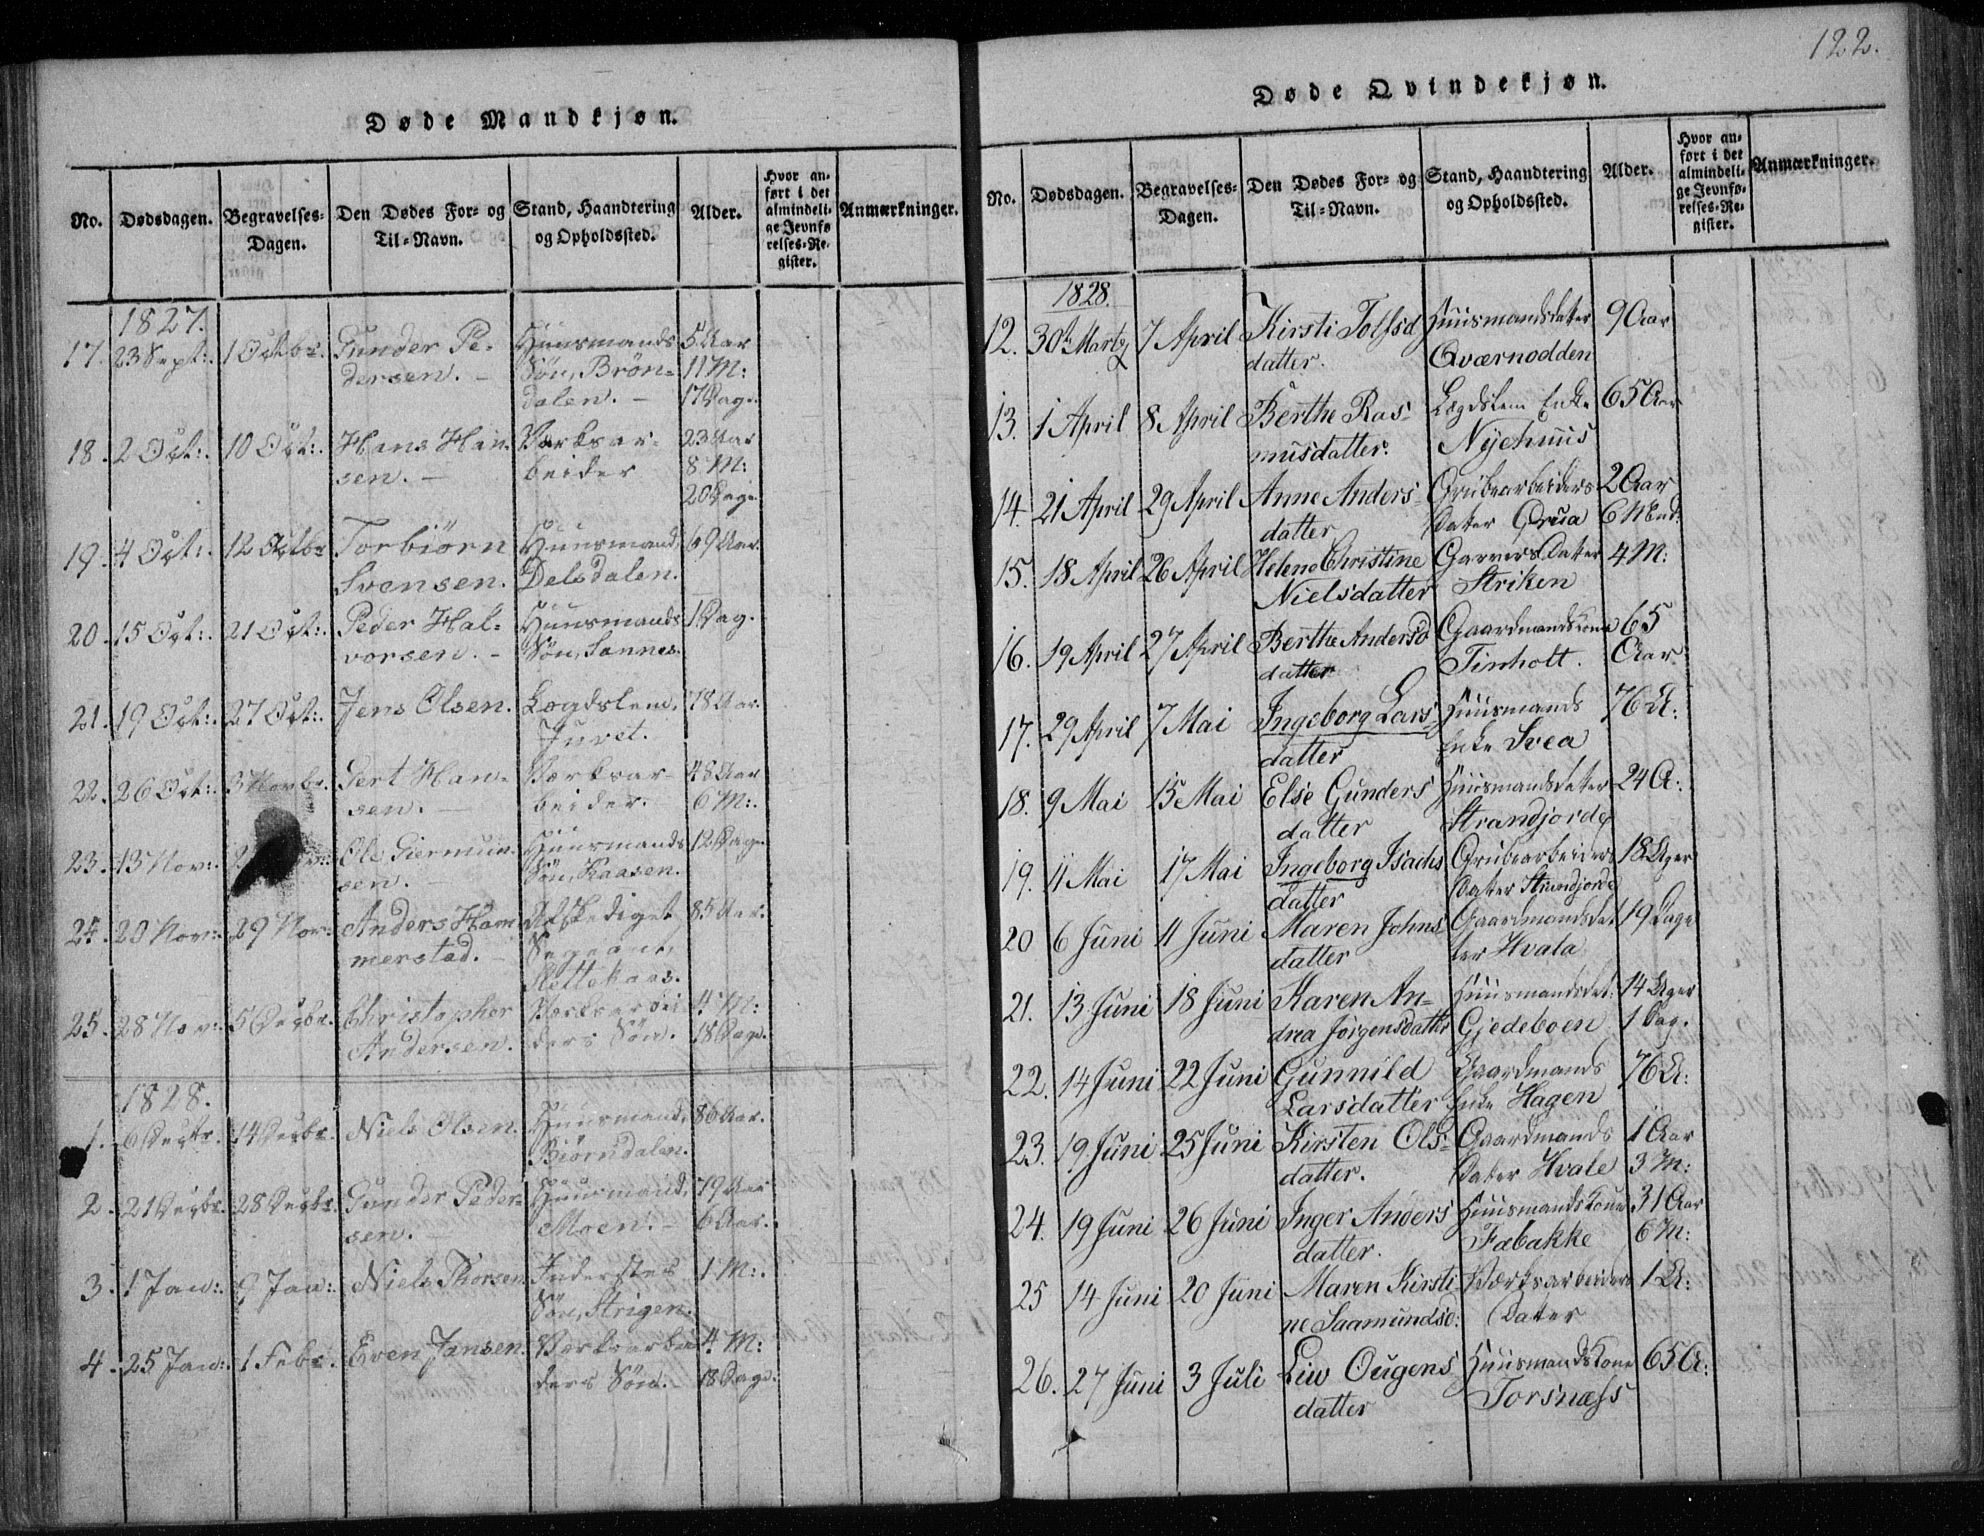 122.
Døde Mandkjøn.
No. Dødsdagen. Begravelses-Dagen. Den Dødes For- og Til-Navn. Stand, Haandtering og Opholdssted. Alder. Hvor anført i det almindelige Jevnførelses-Register. Anmærkninger.
1827.
17. 23 Sept:. 1 Octbr. Gunder Pe- Huusmands 5 Aar
dersen. – Søn, Brøn- 11 M:
dalen. – 17 Dage.
18. 2 Oct:. 10 Oct:. Hans Han- Værksar- 23 Aar
sen. – beider 8 M:
20 Dage.
19. 4 Oct:. 12 Octbr Torbiörn Huusmand, 69 Aar.
Svensen. Delsdalen.
20. 15 Oct:. 21 Oct:. Peder Hal- Huusmands 1 Dag.
vorsen. – Søn, Sannes.
21. 19 Oct:. 27 Oct:. Jens Olsen. Lægdslem, 78 Aar.
Juvet.
22. 26 Oct:. 3 Novbr. Gert Han- Værksar- 48 Aar
sen. – beider. 6 M:.
23. 13 Nov:. Ole Giermun- Huusmands 12 Dage.
sen. – Søn, Kaasen.
24. 20 Nov:. 29 Nov: Anders Ham- Afskediget 85 Aar.
merstad. – Sergeant,
25. 28 Nov:. 5 Decbr. Christopher Værksarbei- 4 M:
Andersen. ders Søn. 18 Dage.
1828.
1. 6 Decbr. 14 Decbr. Niels Olsen. Huusmand, 86 Aar.
Biörndalen.
2. 21 Decbr. 28 Decbr. Gunder Peder- Huusmand, 79 Aar
sen. – Moen. – 6 Aar.
3. 1 Jan:. 9 Jan:. Niels Thorsen Inderstes 1 M:.
Søn, Strigen.
4. 25 Jan:. 1 Febr. Even Jansen. Værksarbei- 4 M:
ders Søn. – 18 Dage.
Døde Qvindekjøn.
No. Dødsdagen. Begravelses-Dagen. Den Dødes For- og Til-Navn. Stand, Haandtering og Opholdssted. Alder. Hvor anført i det almindelige Jevnførelses-Register. Anmærkninger.
1828.
12. 30te Marts 7 April Kirsti Tolfsd Huusmandsdater 9 Aar
datter. Qværnodden
13. 1 April 8 April Berthe Ras- Lægdslem Enke 65 Aar
musdatter. Nyehuus
14. 21 April 29 April Anne Anders- Grubearbeiders 2 Aar
datter Dater Grua 6 Mnd:
15. 18 April 26 April Helene Christine Garvers Dater 4 M:
Nielsdatter Striken
16. 19 April 27 April Berthe Andersd Gaardmandskone 65
datter Tinholt. Aar
17. 29 April 7 Mai Ingeborg Lars Huusmands 76 A:
datter Enke Svea
18. 9 Mai 15 Mai Else Gunders Huusmandsdater 24 A:
datter Strandjorde
19. 11 Mai 17 Mai Ingeborg Isachs Grubearbeiders 18 Uger
datter Dater Strandjorde
20 6 Juni 11 Juni Maren Johns Gaardmandsdat 19 Dage
datter ter Hvala
21. 13 Juni 18 Juni Karen An- Huusmandsdat: 14 Uger
drea Jørgensdatter Gjedeboen 1 Dag.
22. 14 Juni 22 Juni Gunnild Gaardmands 76 A:
Larsdatter Enke Hagen
23. 19 Juni 25 Juni Kirsten Ols- Gaardmands 1 Aar
datter. Dater Hvale 3 M:
24. 19 Juni 26 Juni Inger Anders Huusmandskone 31 Aar
datter. Fæbakke 6 M:
25 14 Juni 20 Juni Maren Kirsti- Værksarbeiders 1 A:
ne Saamundsd: Dater
26. 27 Juni 3 Juli Liv Ougens Huusmandskone 65 A:
datter Torsnæss